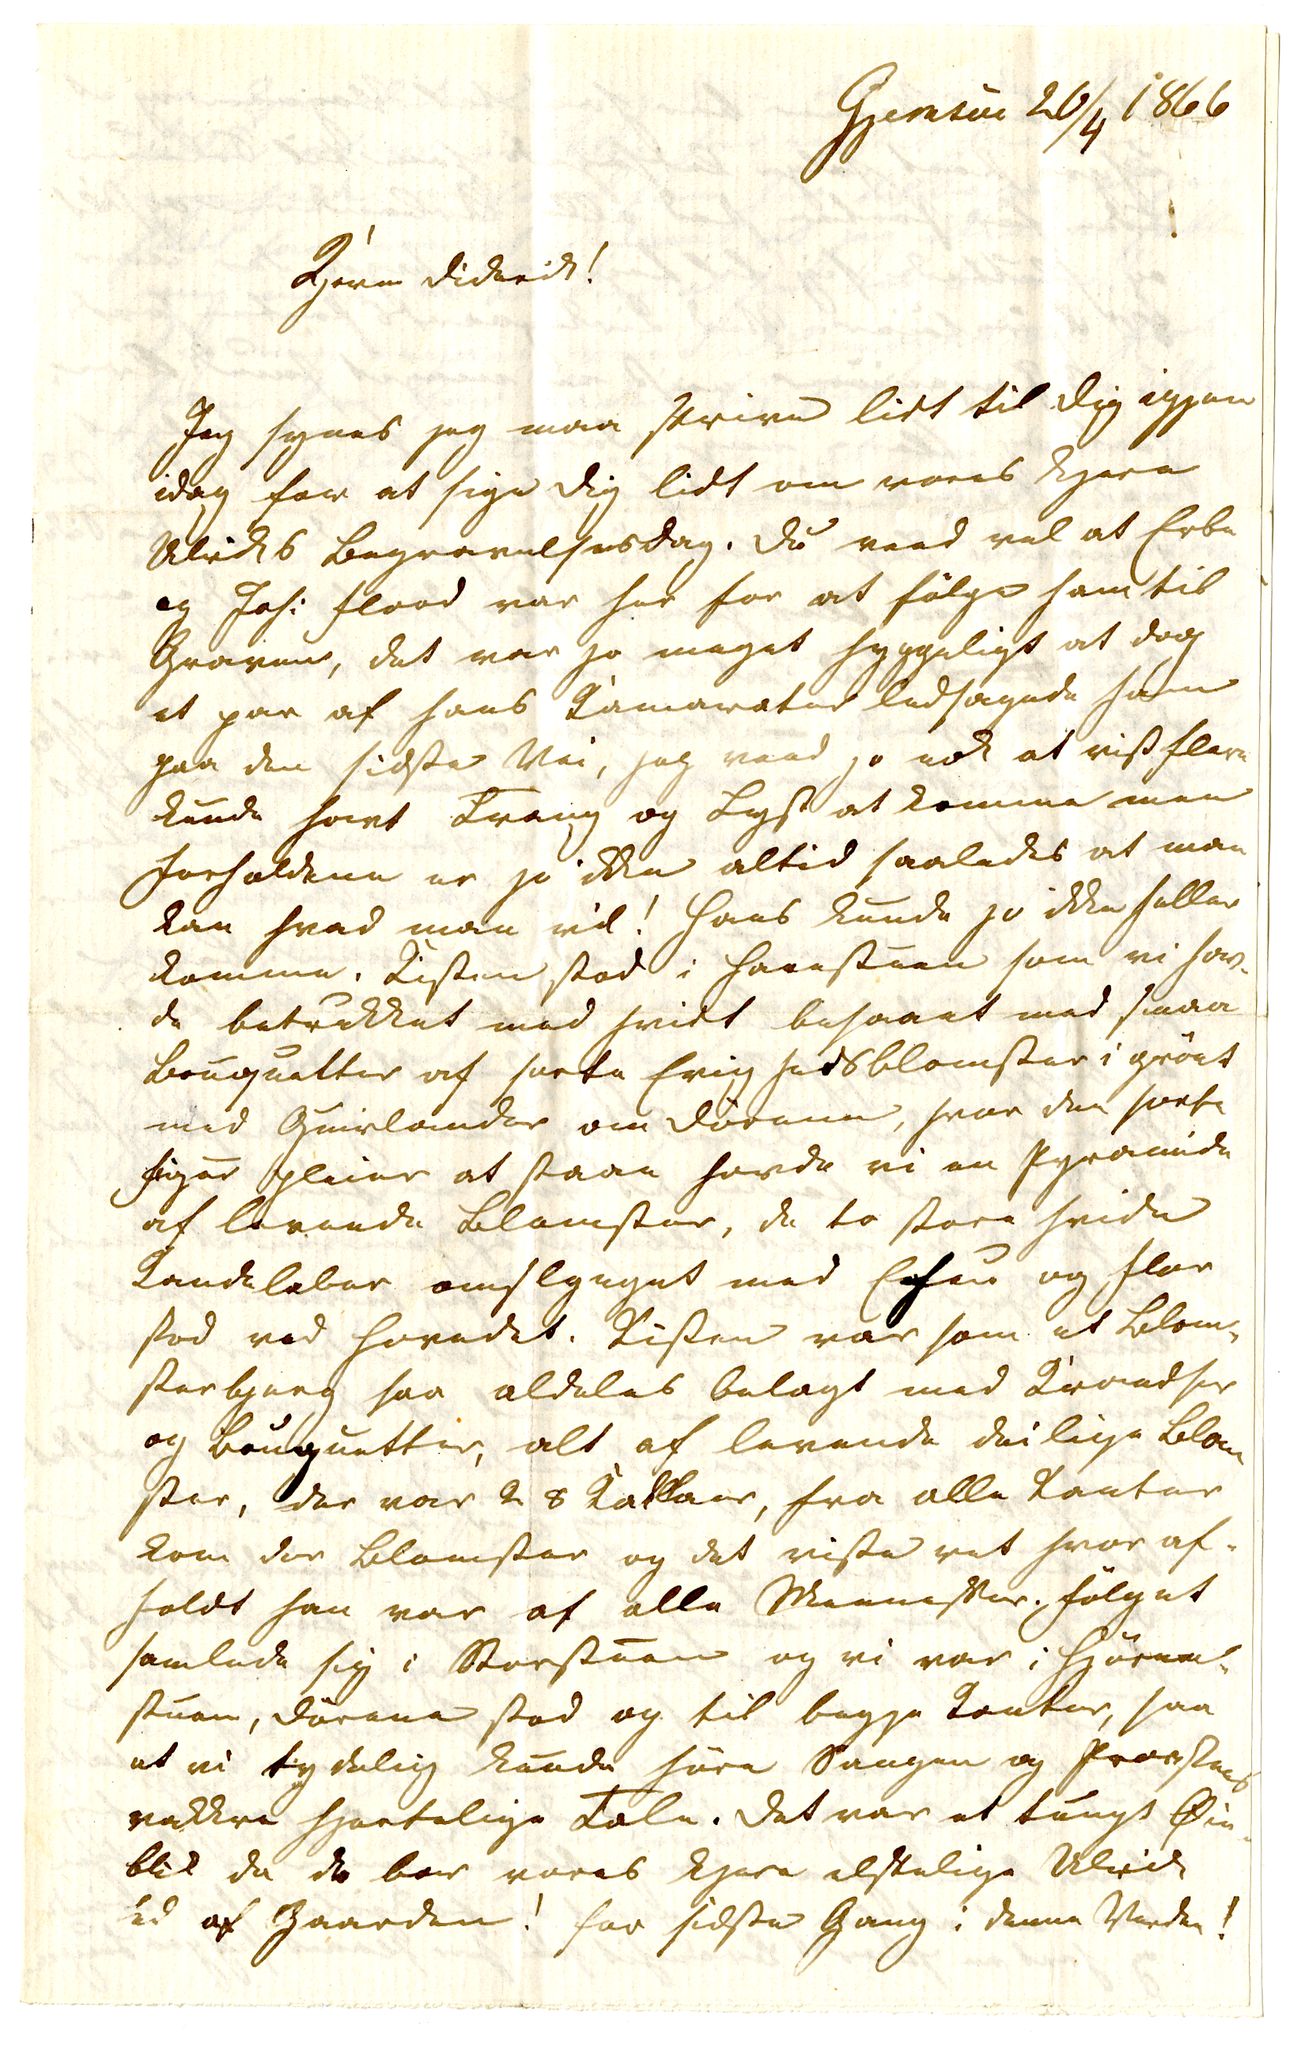 Gjemsøe 26/4 1866
Kjere Didrik!
Jeg synes jeg maa skrive lidt til Dig igjen
idag for at sige Dig lidt om vores kjere
Ulriks Begravelsesdag. Du veed vel at Erbe
og Joh: Flood var her for at følge ham til
Graven, det var jo meget hyggeligt at dog
et par af hans Kamarater ledsagede ham
paa den sidste Vei, jeg veed jo nok at vist flere
kunde havt Trang og Lyst at komme men
Forholdene er jo ikke altid saaledes at man
kan hvad man vil! Hans kunde jo ikke heller
komme. Kisten stod i Havestuen som vi hav-
de betrukket med hvidt besaaet med smaa
Bouquetter af sorte Evighedsblomster i grønt
med Guirlander om Dørene, hvor den sorte
Figur pleier at staae havde vi en Pyramide
af levende Blomster, de to store hvide
Kandelaber omslynget med Efeu og Flor
stod ved Hovedet. Kisten var som et Blom-
sterbjerg saa aldeles belagt med Krandser
og Bouquetter, alt af levende deilige Blom
ster, der var 28 Kallaer, fra alle Kanter
kom der Blomster og det viste ret hvor af-
holdt han var af alle Mennesker. Følget
samlede sig i Storstuen og vi var i Hjørne-
stuen, Dørene stod og til begge Kanter, saa
at vi tydelig kunde høre Sangen og Provstens
vakkre hjertelige Tale. Det var et tungt Øie-
blik da de bar vores kjere elskelige Ulrik
ud af Gaarden! for sidste Gang i denne Verden!